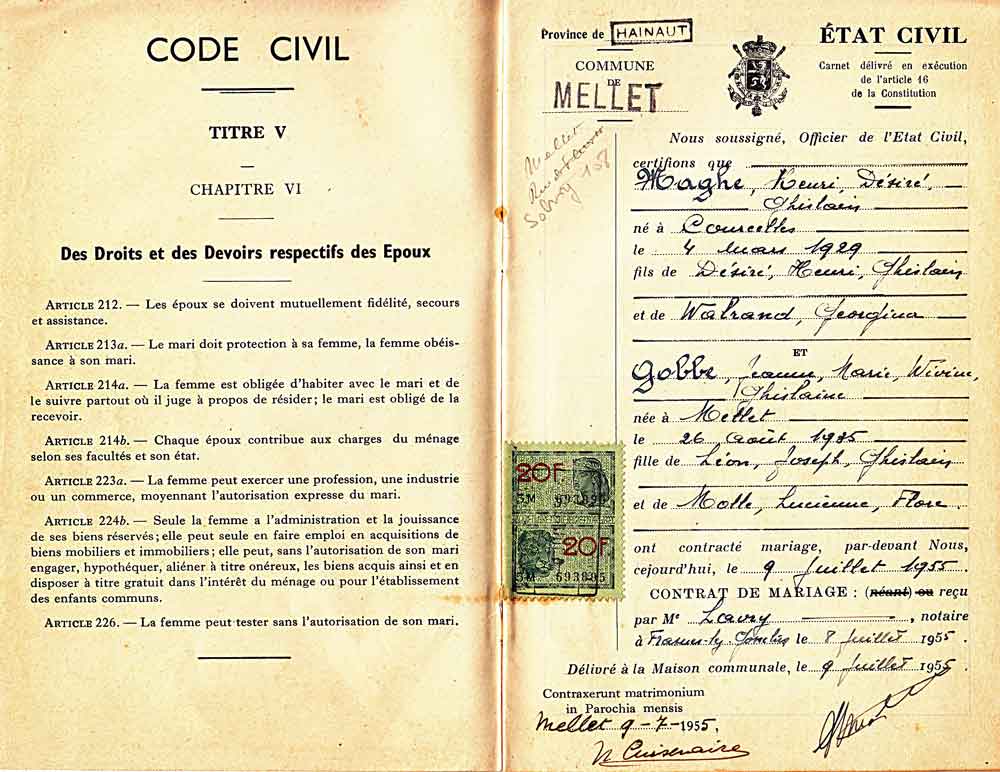 CODE CIVIL
TITRE V
CHAPITRE VI
Des Droits et des Devoirs respectifs des Epoux
ARTICLE 212. — Les époux se doivent mutuellement fidélité, secours
et assistance.
ARTICLE 213a. — Le mari doit protection à sa femme, la femme obéis-
sance à son mari.
ARTICLE 214a. — La femme est obligée d'habiter avec le mari et de
le suivre partout où il juge à propos de résider; le mari est obligé de la
recevoir.
ARTICLE 214b. — Chaque époux contribue aux charges du ménage
selon ses facultés et son état.
ARTICLE 223a. — La femme peut exercer une profession, une industrie
ou un commerce, moyennant l'autorisation expresse du mari.
ARTICLE 224b. — Seule la femme a l'administration et la jouissance
de ses biens réservés; elle peut seule en faire emploi en acquisitions de
biens mobiliers et immobiliers; elle peut, sans l'autorisation de son mari
engager, hypothéquer, aliéner à titre onéreux, les biens acquis ainsi et en
disposer à titre gratuit dans l'intérêt du ménage ou pour l'établissement
des enfants communs.
ARTICLE 226. — La femme peut tester sans l'autorisation de son mari.
Province de HAINAUT
COMMUNE
DE
MELLET
Mellet
158
Solvay
ÉTAT CIVIL
Carnet délivré en exécution
de l'article 16
de la Constitution
Nous soussigné, Officier de l'Etat Civil,
certifions que
Maghe, Henri, Désiré,
Ghislain
né à Courcelles
le 4 Mars 1929
fils de Désiré, Henri, Ghislain
et de Walrand, Georgina
ET
Gobbe, Jeanne, Marie, Wivine,
Ghislaine
née à Mellet
le 26 Août 1935
fille de Léon, Joseph, Ghislain
et de Molle, Lucienne, Flore.
ont contracté mariage, par-devant Nous,
cejourd'hui, le 9 Juillet 1955.
CONTRAT DE MARIAGE : (néant) ou reçu
par Me Lavry, notaire
à Frasnes-lz-Gosselies le 8 Juillet 1955.
Délivré à la Maison communale, le 9 Juillet 1955
20F
3M 693896
20F
3M 693895
Contraxerunt matrimonium
in Parochia mensis
Mellet 9-7-1955,
N Cuisenaire